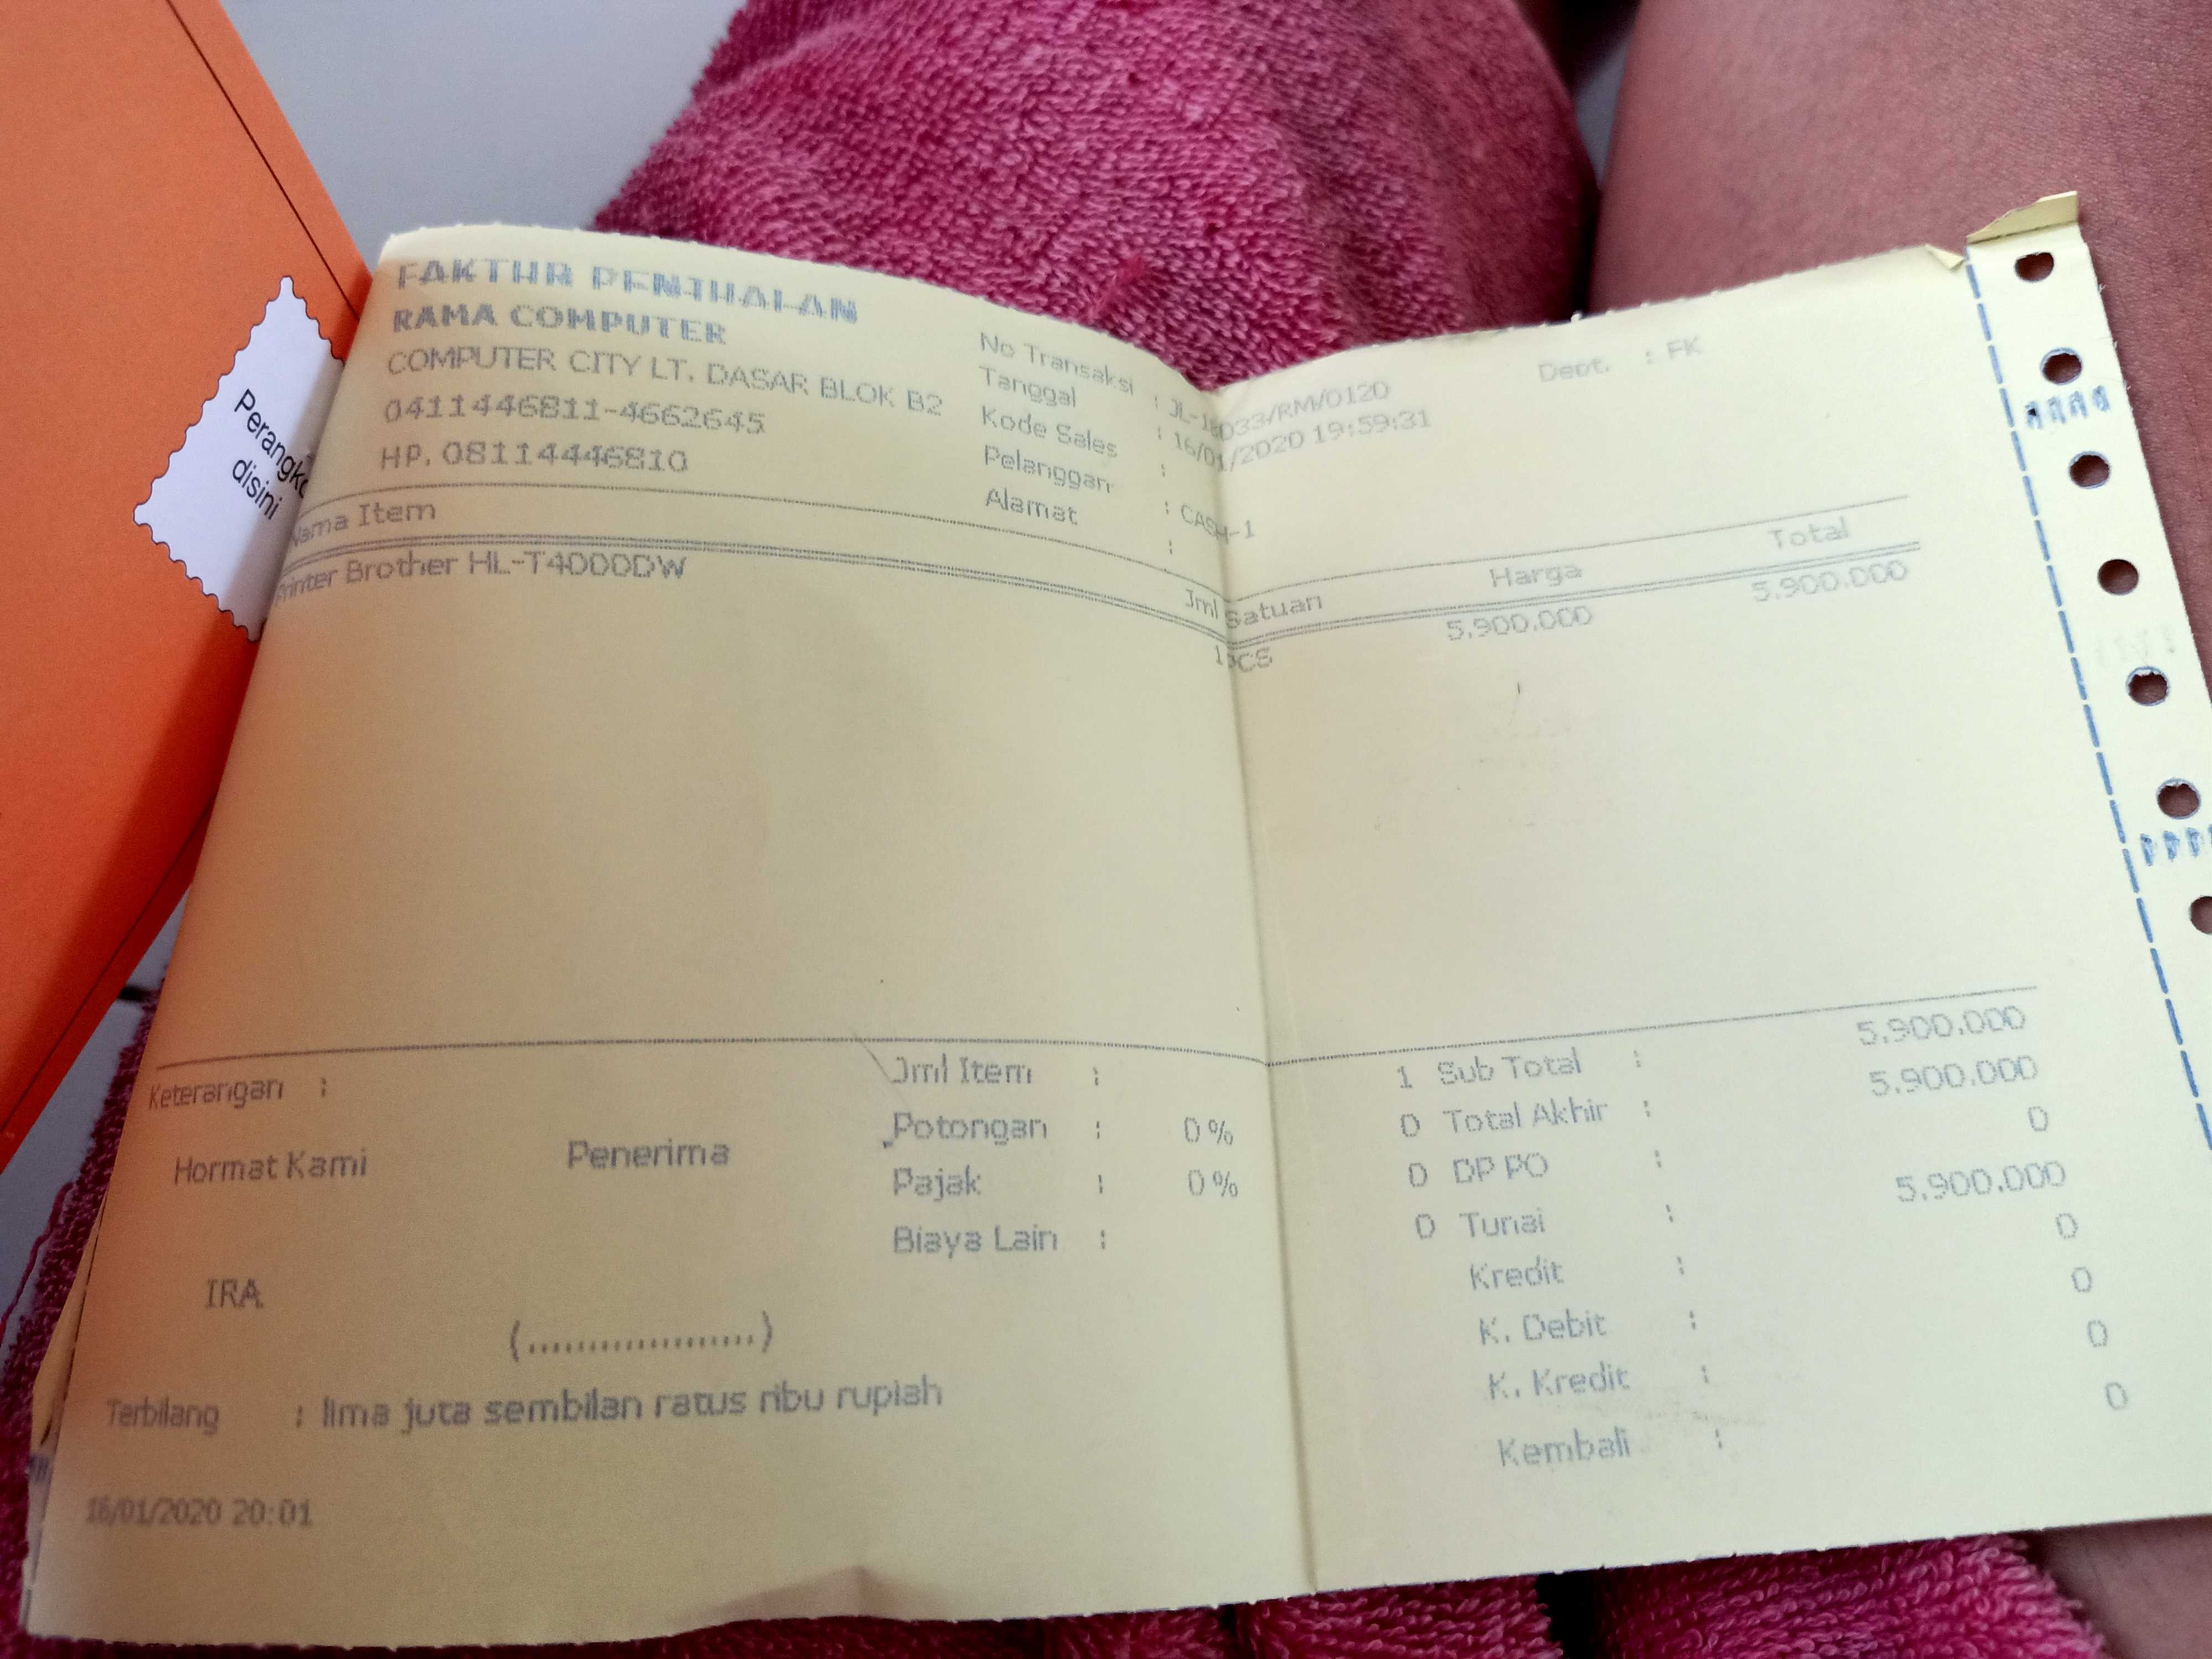 Perangko
disini
FAKTUR PENJUALAN
RAMA COMPUTER
COMPUTER CITY LT. DASAR BLOK B2
0411446811-4662645
HP. 08114446810
No Transaksi : JL-18033/RM/0120
Tanggal : 16/01/2020 19:59:31
Kode Sales :
Pelanggan : CASH-1
Alamat :
Dept. : FK
Nama Item Jml Satuan Harga Total
Printer Brother HL-T4000DW 1 PCS 5.900.000 5.900.000
Keterangan :
Hormat Kami Penerima
IRA
(...................)
Jml Item : 1
Potongan : 0 % 0
Pajak : 0 % 0
Biaya Lain : 0
Sub Total : 5.900.000
Total Akhir : 5.900.000
DP PO : 0
Tunai : 5.900.000
Kredit : 0
K. Debit : 0
K. Kredit : 0
Kembali : 0
Terbilang : lima juta sembilan ratus ribu rupiah
16/01/2020 20:01